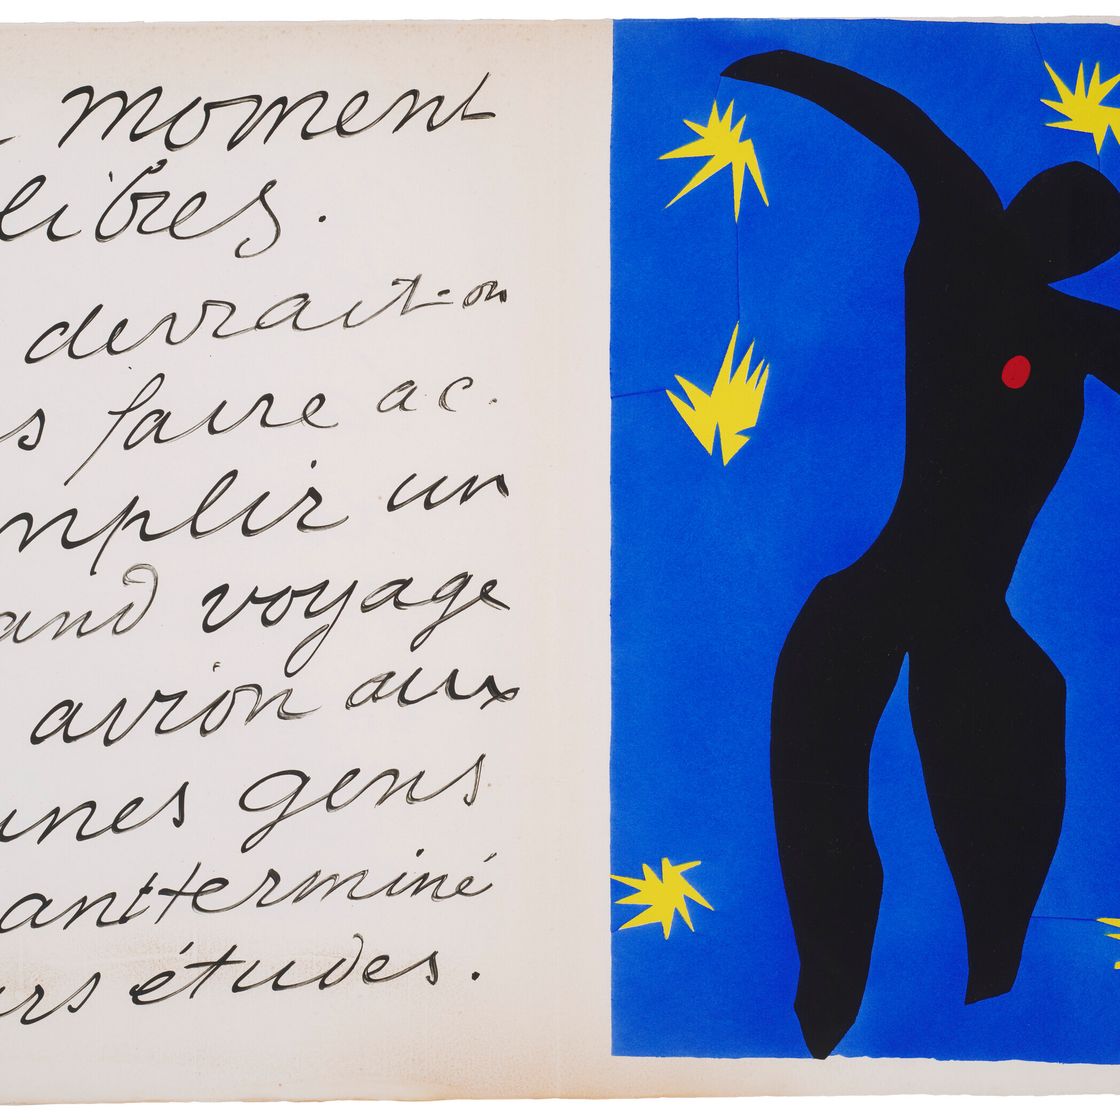 moment
libres.
devrait-on
s faire ac.
mplir un
and voyage
avion aux
unes gens
ant terminé
urs études.